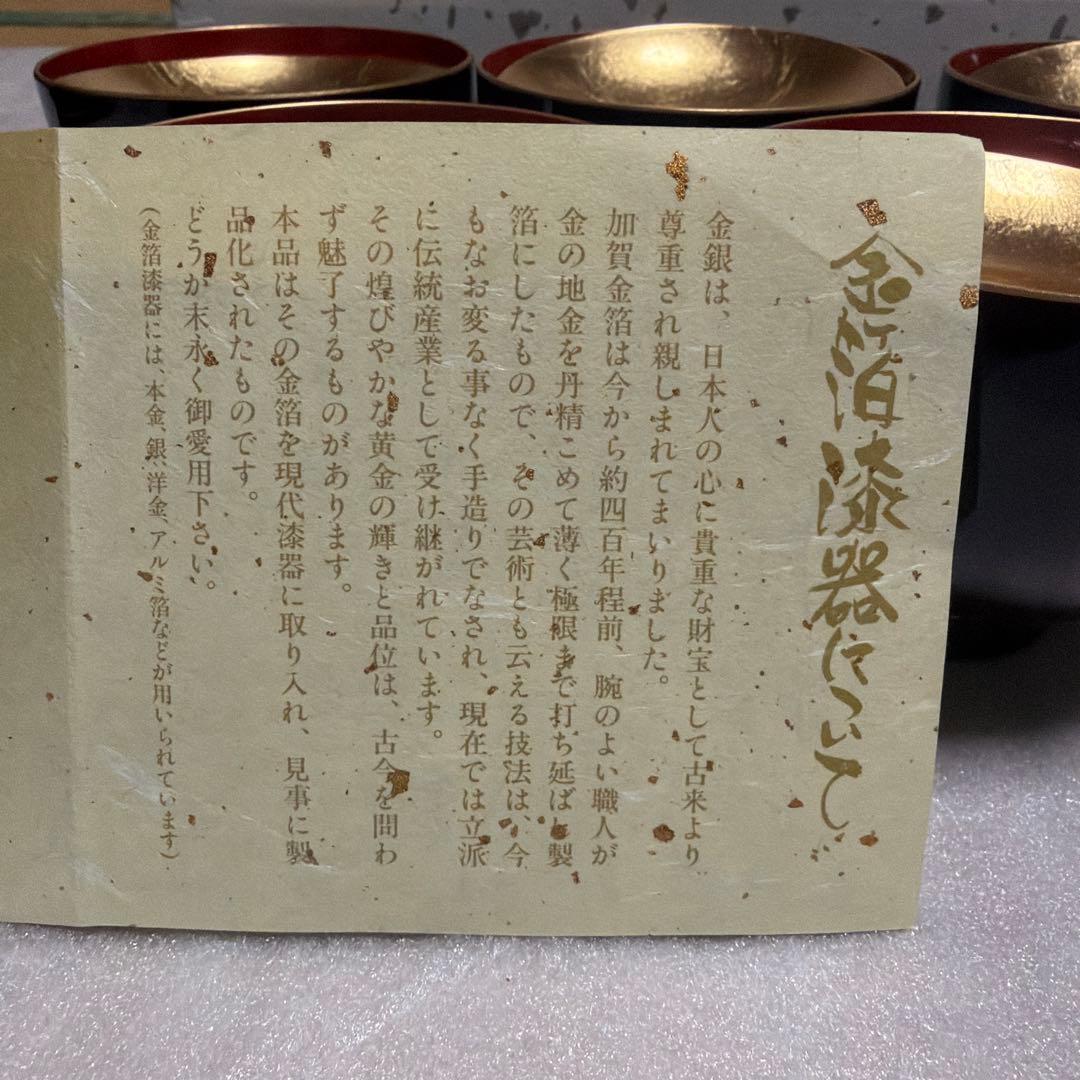 金箔漆器について
金銀は、日本人の心に貴重な財宝として古来より
尊重され親しまれてまいりました。
加賀金箔は今から約四百年程前、腕のよい職人が
金の地金を丹精こめて薄く極限まで打ち延ばし製
箔にしたもので、その芸術とも云える技法は、今
もなお変る事なく手造りでなされ、現在では立派
に伝統産業として受け継がれています。
その煌びやかな黄金の輝きと品位は、古今を問わ
ず魅了するものがあります。
本品はその金箔を現代漆器に取り入れ、見事に製
品化されたものです。
どうか末永く御愛用下さい。
(金箔漆器には、本金、銀、洋金、アルミ箔などが用いられています)